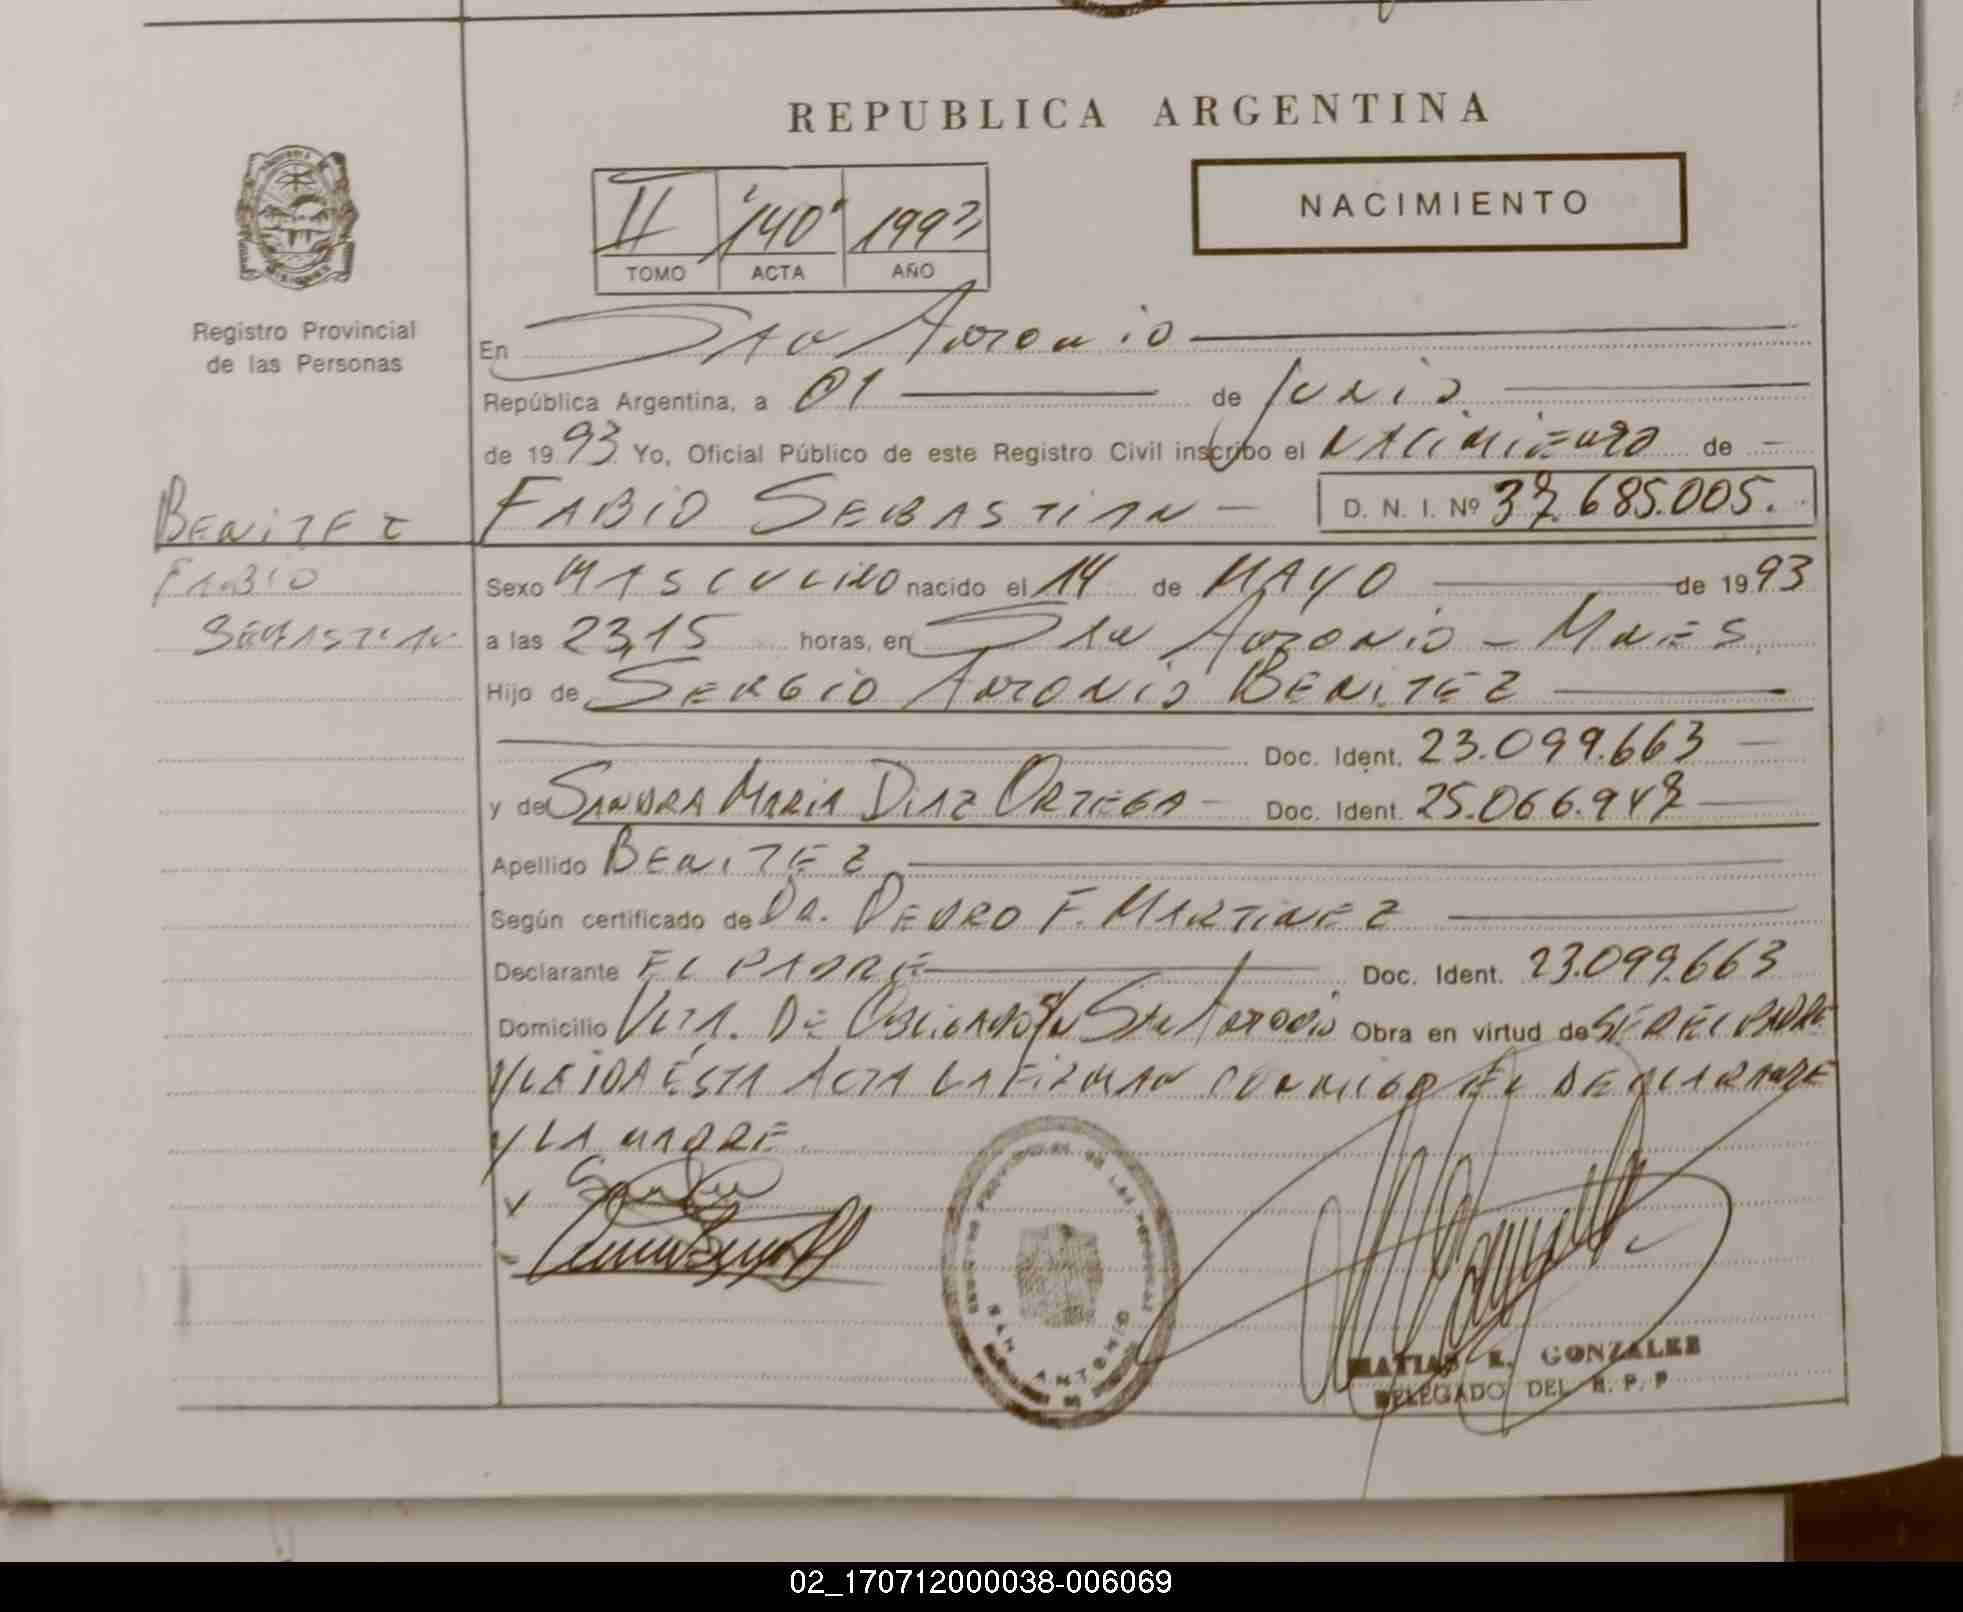 REPUBLICA ARGENTINA
NACIMIENTO
II 140 1993
TOMO ACTA AÑO
Registro Provincial
de las Personas
En San Antonio
República Argentina, a 01 de Junio
de 1993 Yo, Oficial Público de este Registro Civil inscribo el NACIMIENTO de
BENITEZ
FABIO
SEBASTIAN
FABIO SEBASTIAN D. N. I. Nº 37.685.005.
Sexo MASCULINO nacido el 14 de MAYO de 1993
a las 23,15 horas, en San Antonio - Mnes
Hijo de SERGIO ANTONIO BENITEZ
Doc. Ident. 23.099.663
y de SANDRA MARIA DIAZ ORTEGA Doc. Ident. 25.066.947
Apellido BENITEZ
Según certificado de DR. PEDRO F. MARTINEZ
Declarante EL PADRE Doc. Ident. 23.099.663
Domicilio VLTA. DE OBLIGADO S/N San Antonio Obra en virtud de SER EL PADRE
Y LEIDA ESTA ACTA LA FIRMAN CONMIGO EL DECLARANTE
Y LA MADRE.
SAN ANTONIO
MATIAS R. GONZALEZ
DELEGADO DEL R. P. P
02_170712000038-006069